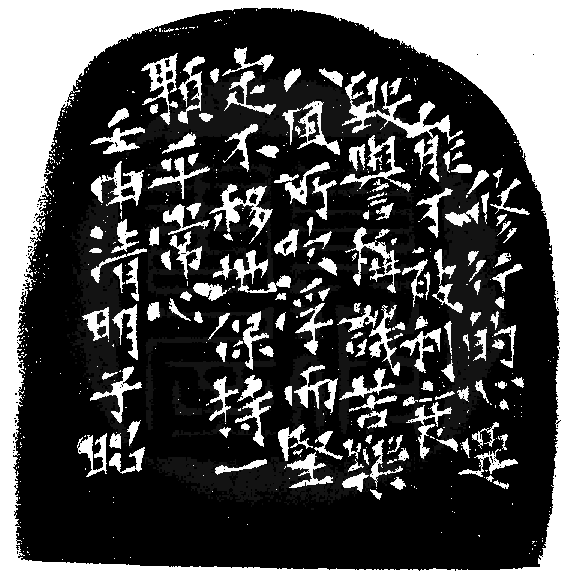 修行的心要
能不被利衰
毀譽稱譏苦樂
八風所吹浮而堅
定不移地保持一
顆平常心
壬申清明子昭